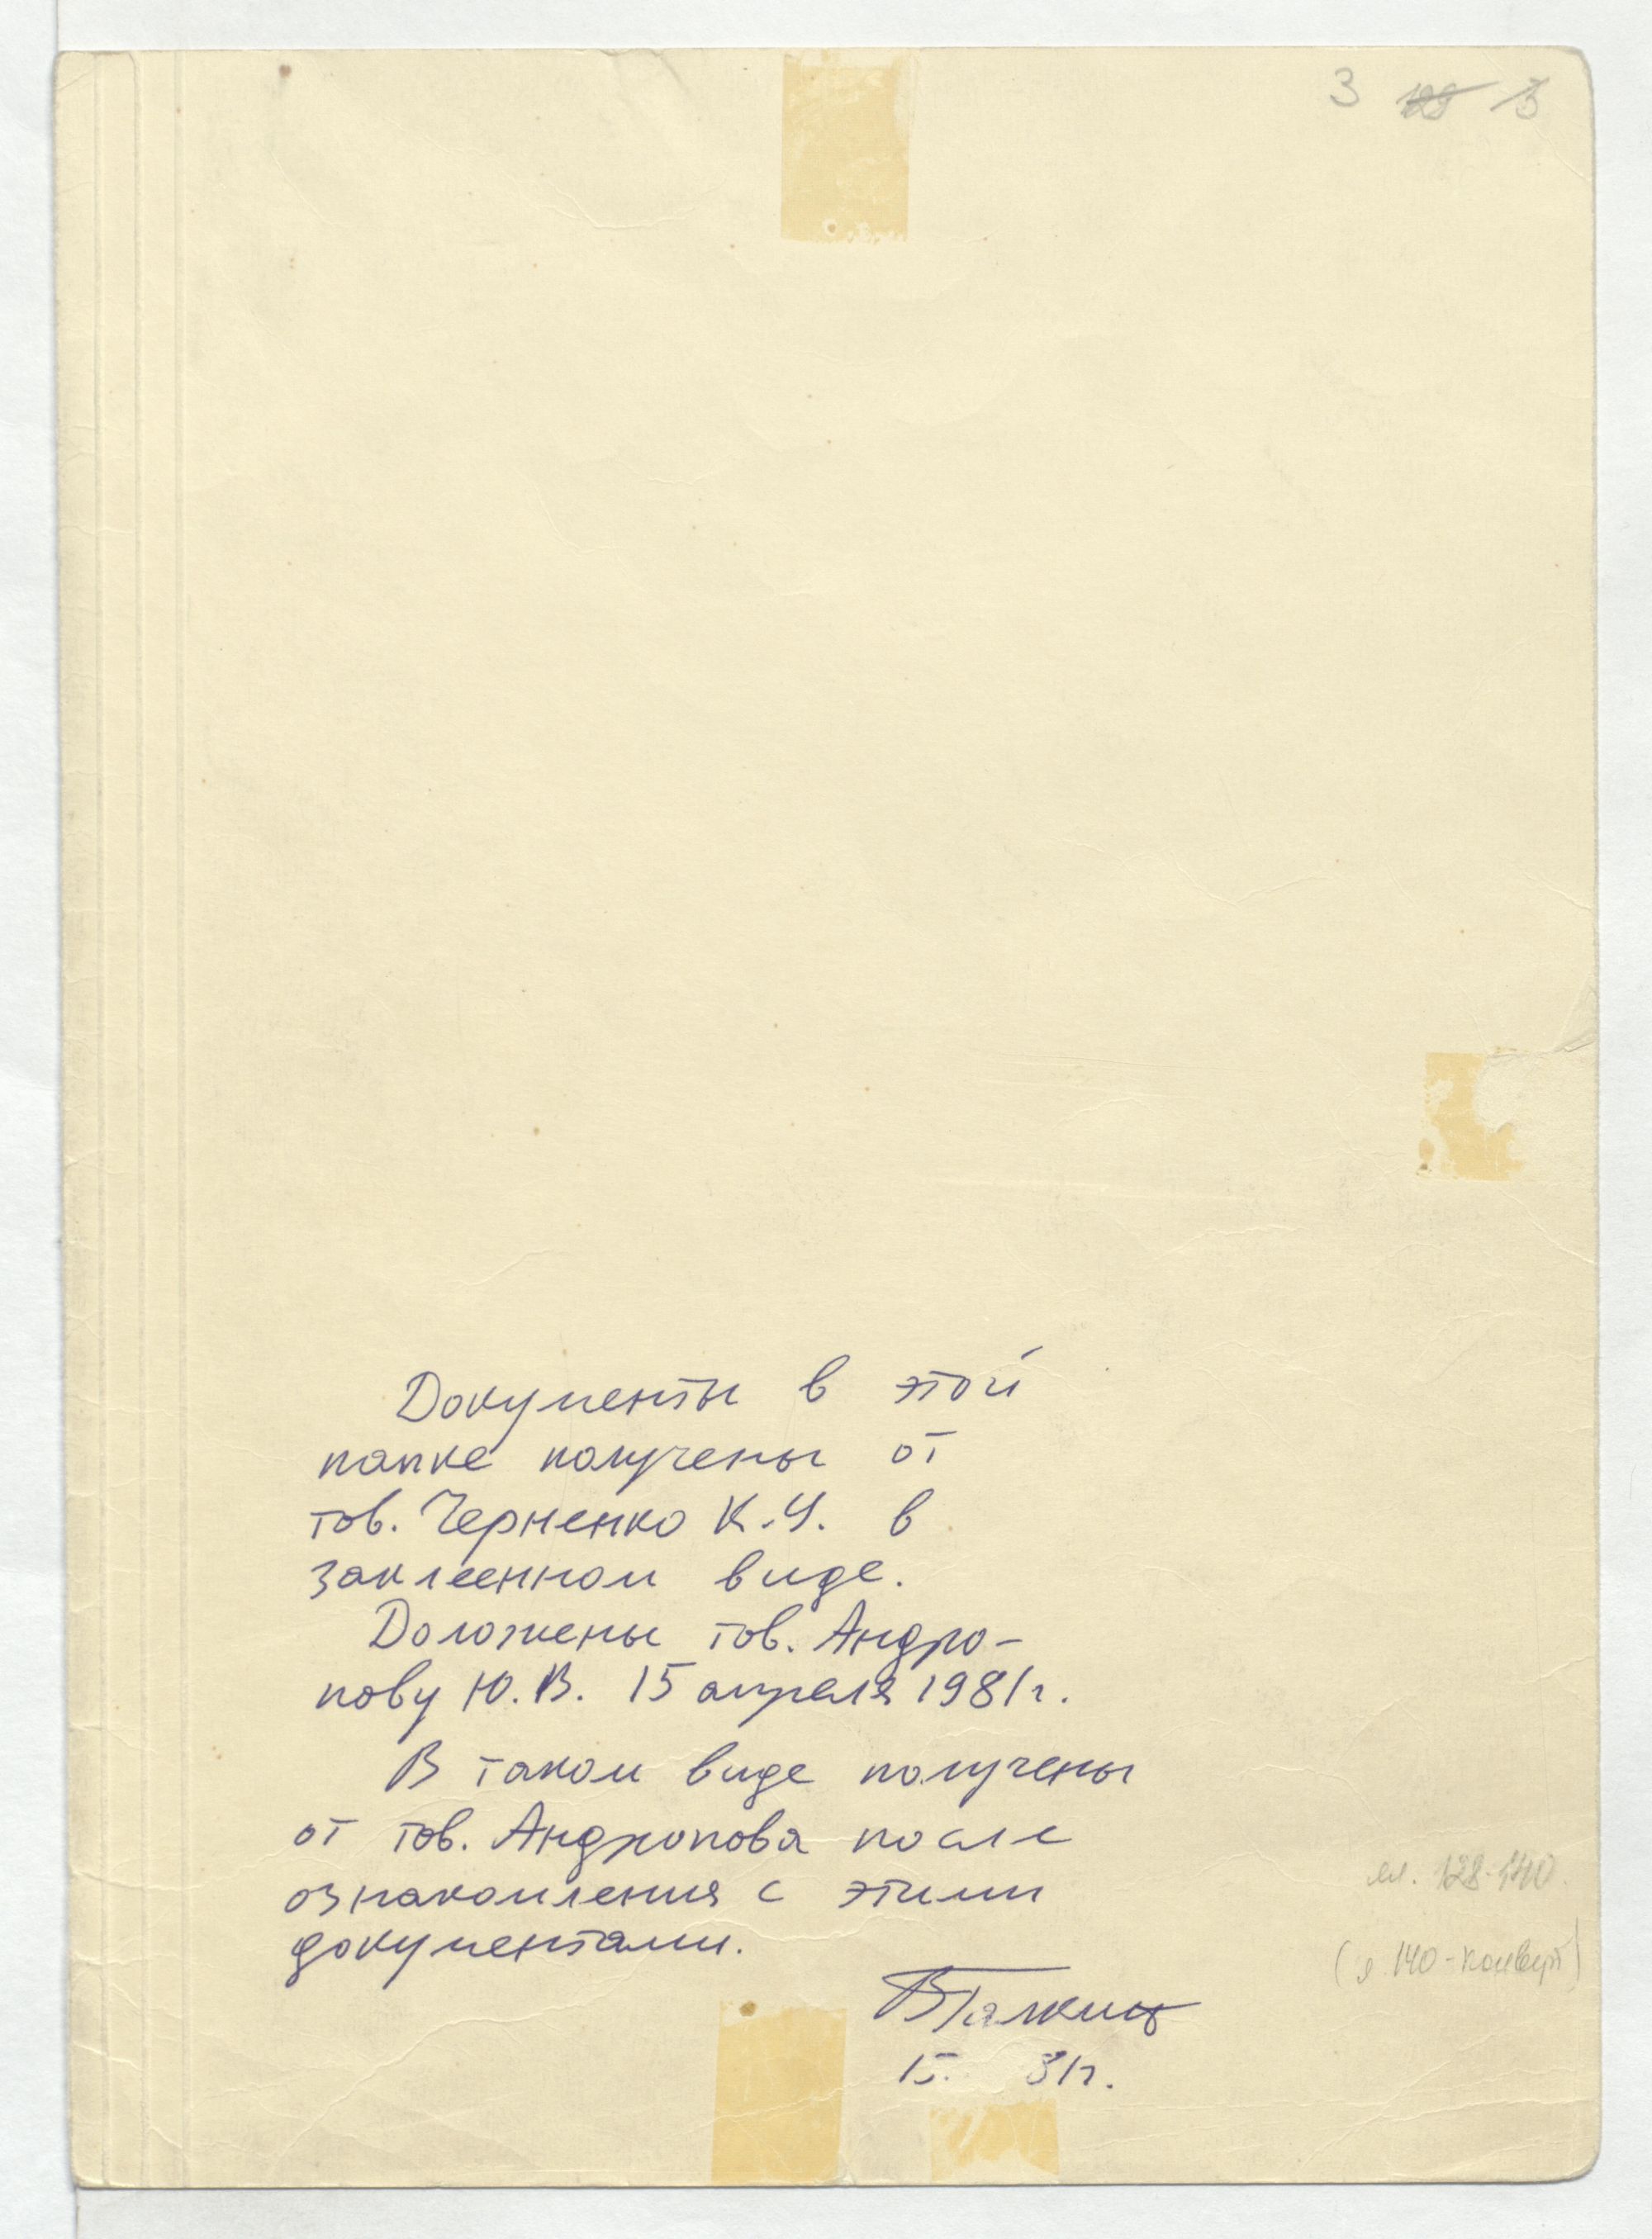 3
Документы в этой
папке получены от
тов. Черненко К.У. в
заклеенном виде.
Доложены тов. Андро-
пову Ю.В. 15 апреля 1981г.
В таком виде получены
от тов. Андропова после
ознакомления с этими
документами.
лл. 128-140.
(л 140-конверт)
ВГалкин
15. 81г.